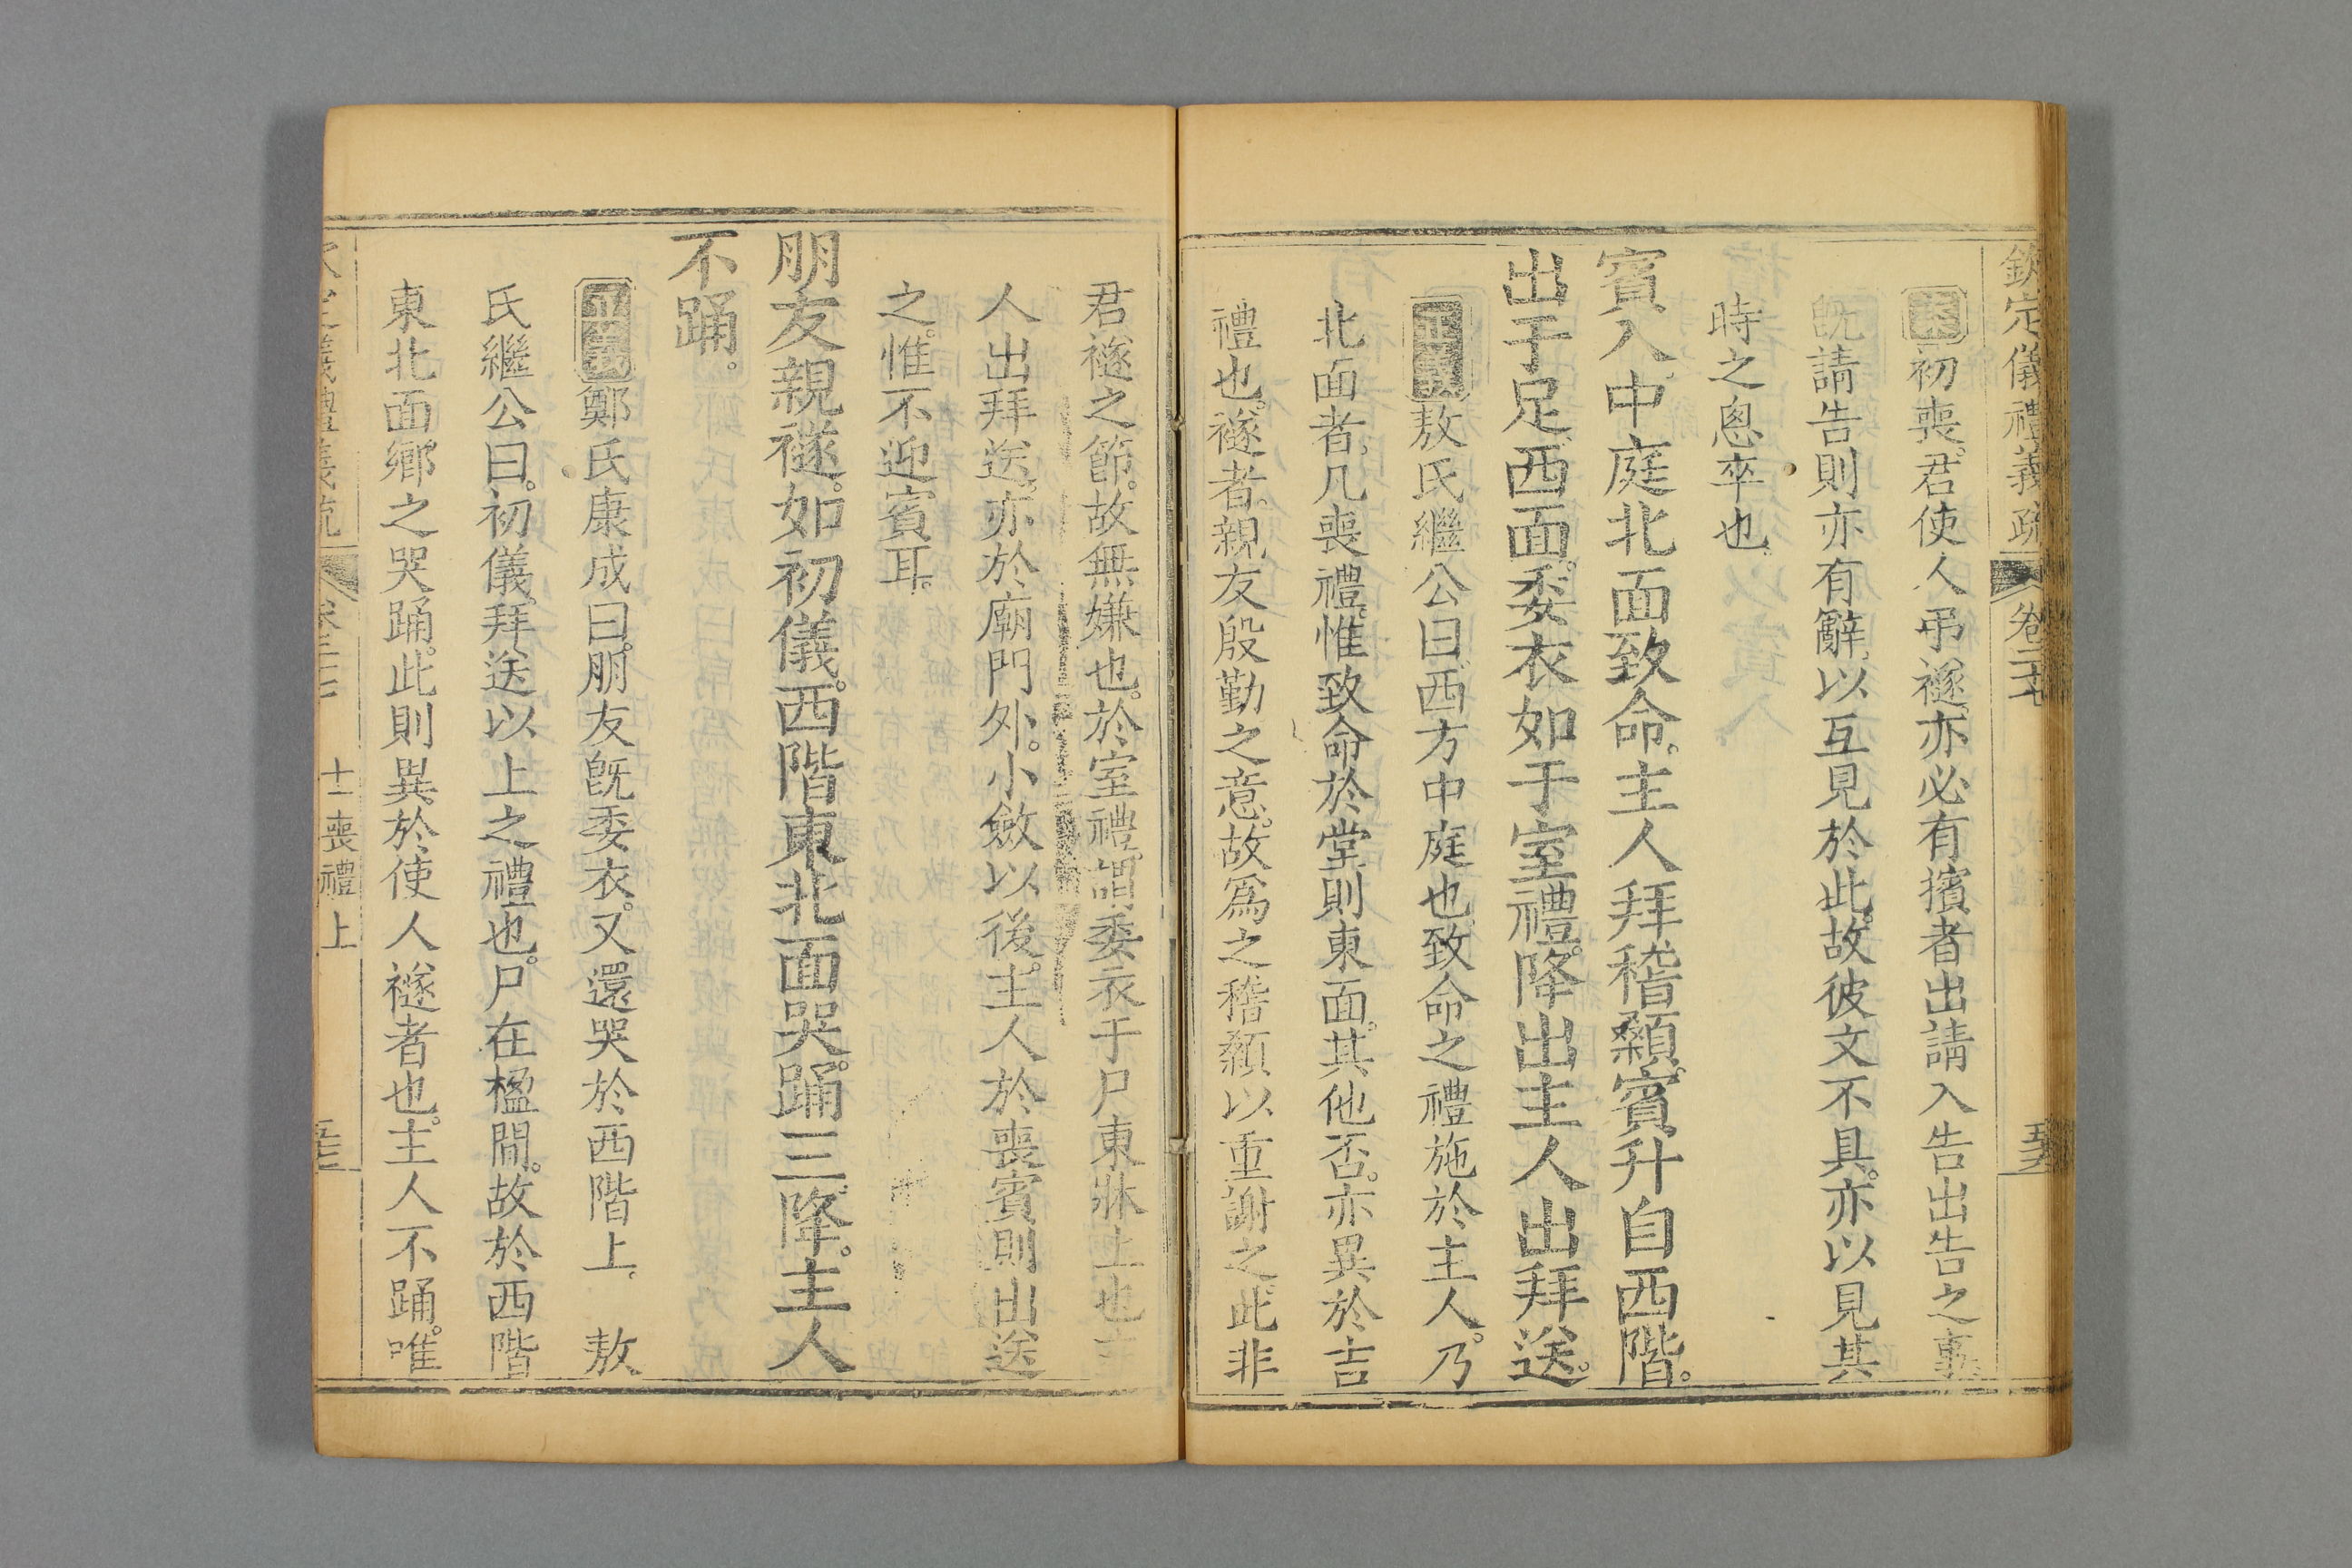 欽定儀禮義疏 卷二十七
案初喪君使人弔襚亦必有擯者出請入告出告之事
既請告則亦有辭以互見於此故彼文不具亦以見其
時之恩卒也
賓入中庭北面致命主人拜稽顙賓升自西階
出于足西面委衣如于室禮降出主人出拜送
正義敖氏繼公曰西方中庭也致命之禮施於主人乃
北面者凡喪禮惟致命於堂則東面其他否亦異於吉
禮也襚者親友殷勤之意故為之稽顙以重謝之此非
君襚之節故無嫌也於室禮謂委衣于尸東牀上也主
人出拜送亦於廟門外小斂以後主人於喪賓則出送
之惟不迎賓耳
朋友親襚如初儀西階東北面哭踊三降主人
不踊
正義鄭氏康成曰朋友既委衣又還哭於西階上 敖
氏繼公曰初儀拜送以上之禮也尸在楹閒故於西階
東北面鄉之哭踊此則異於使人襚者也主人不踊唯
士喪禮上